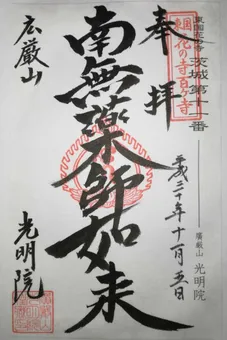 東国花の寺 茨城第十一番
廣厳山 光明院
奉拝
東国花の寺百ヶ寺
平成三十年十一月五日
南無薬師如来
広厳山
光明院